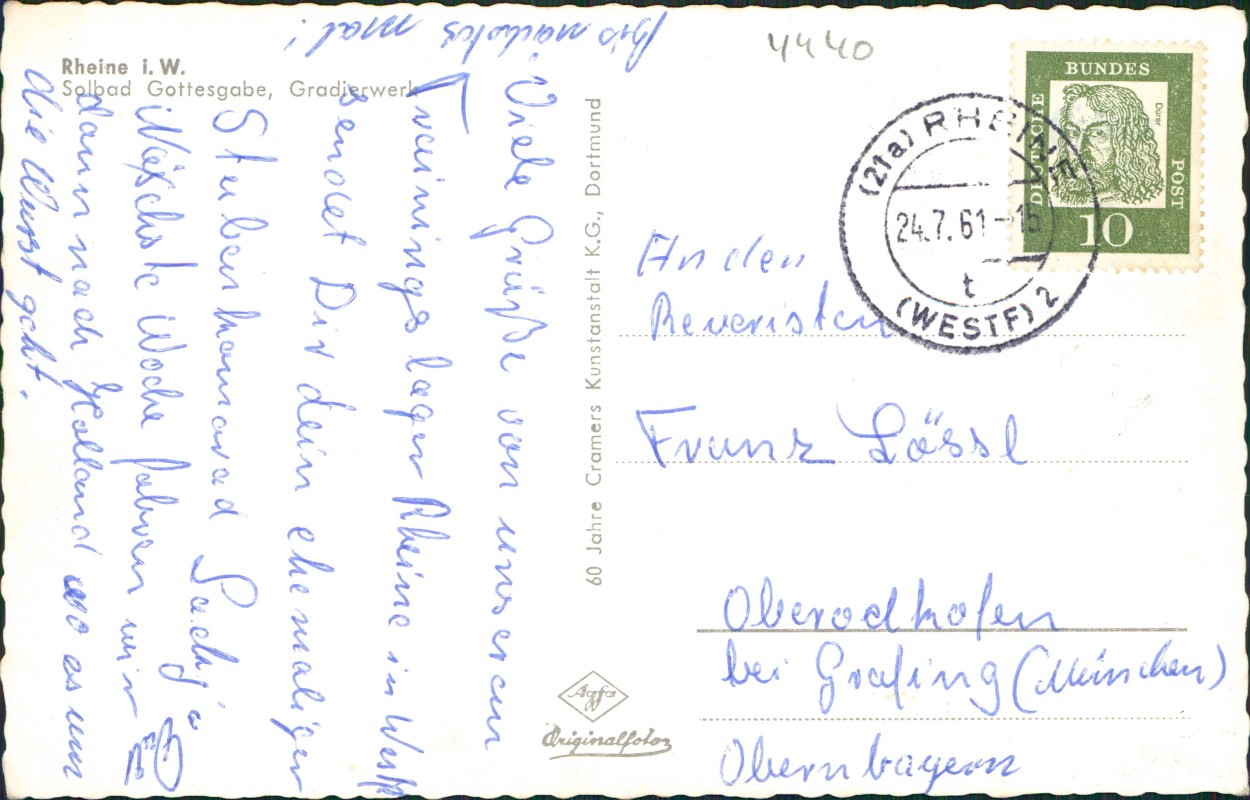 Rheine i. W.
Solbad Gottesgabe, Gradierwerk
Viele Grüße von unseren
Trainingslager Rheine in Westf
sendet Dir dein ehemaliger
Stubenkamarad
Nächste Woche fahren wir
dann nach Holland wo es um
die Wurst geht.
Bis nächstes mal!
60 Jahre Cramers Kunstanstalt K.G., Dortmund
Agfa
Originalfoto
4440
DEUTSCHE
BUNDES
POST
Dürer
10
(21a) RHEINE
24.7.61-15
t
(WESTF) 2
An den
Franz Lössl
Oberodkofen
bei Grafing (München)
Obernbayern